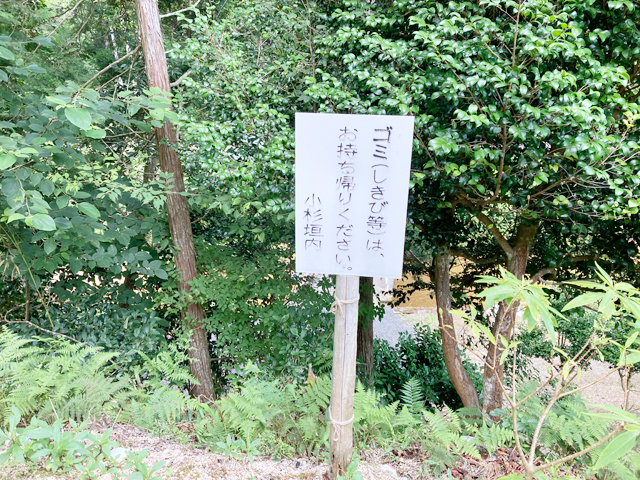 ゴミ(しきび等)は、
お持ち帰りください。
小杉垣内